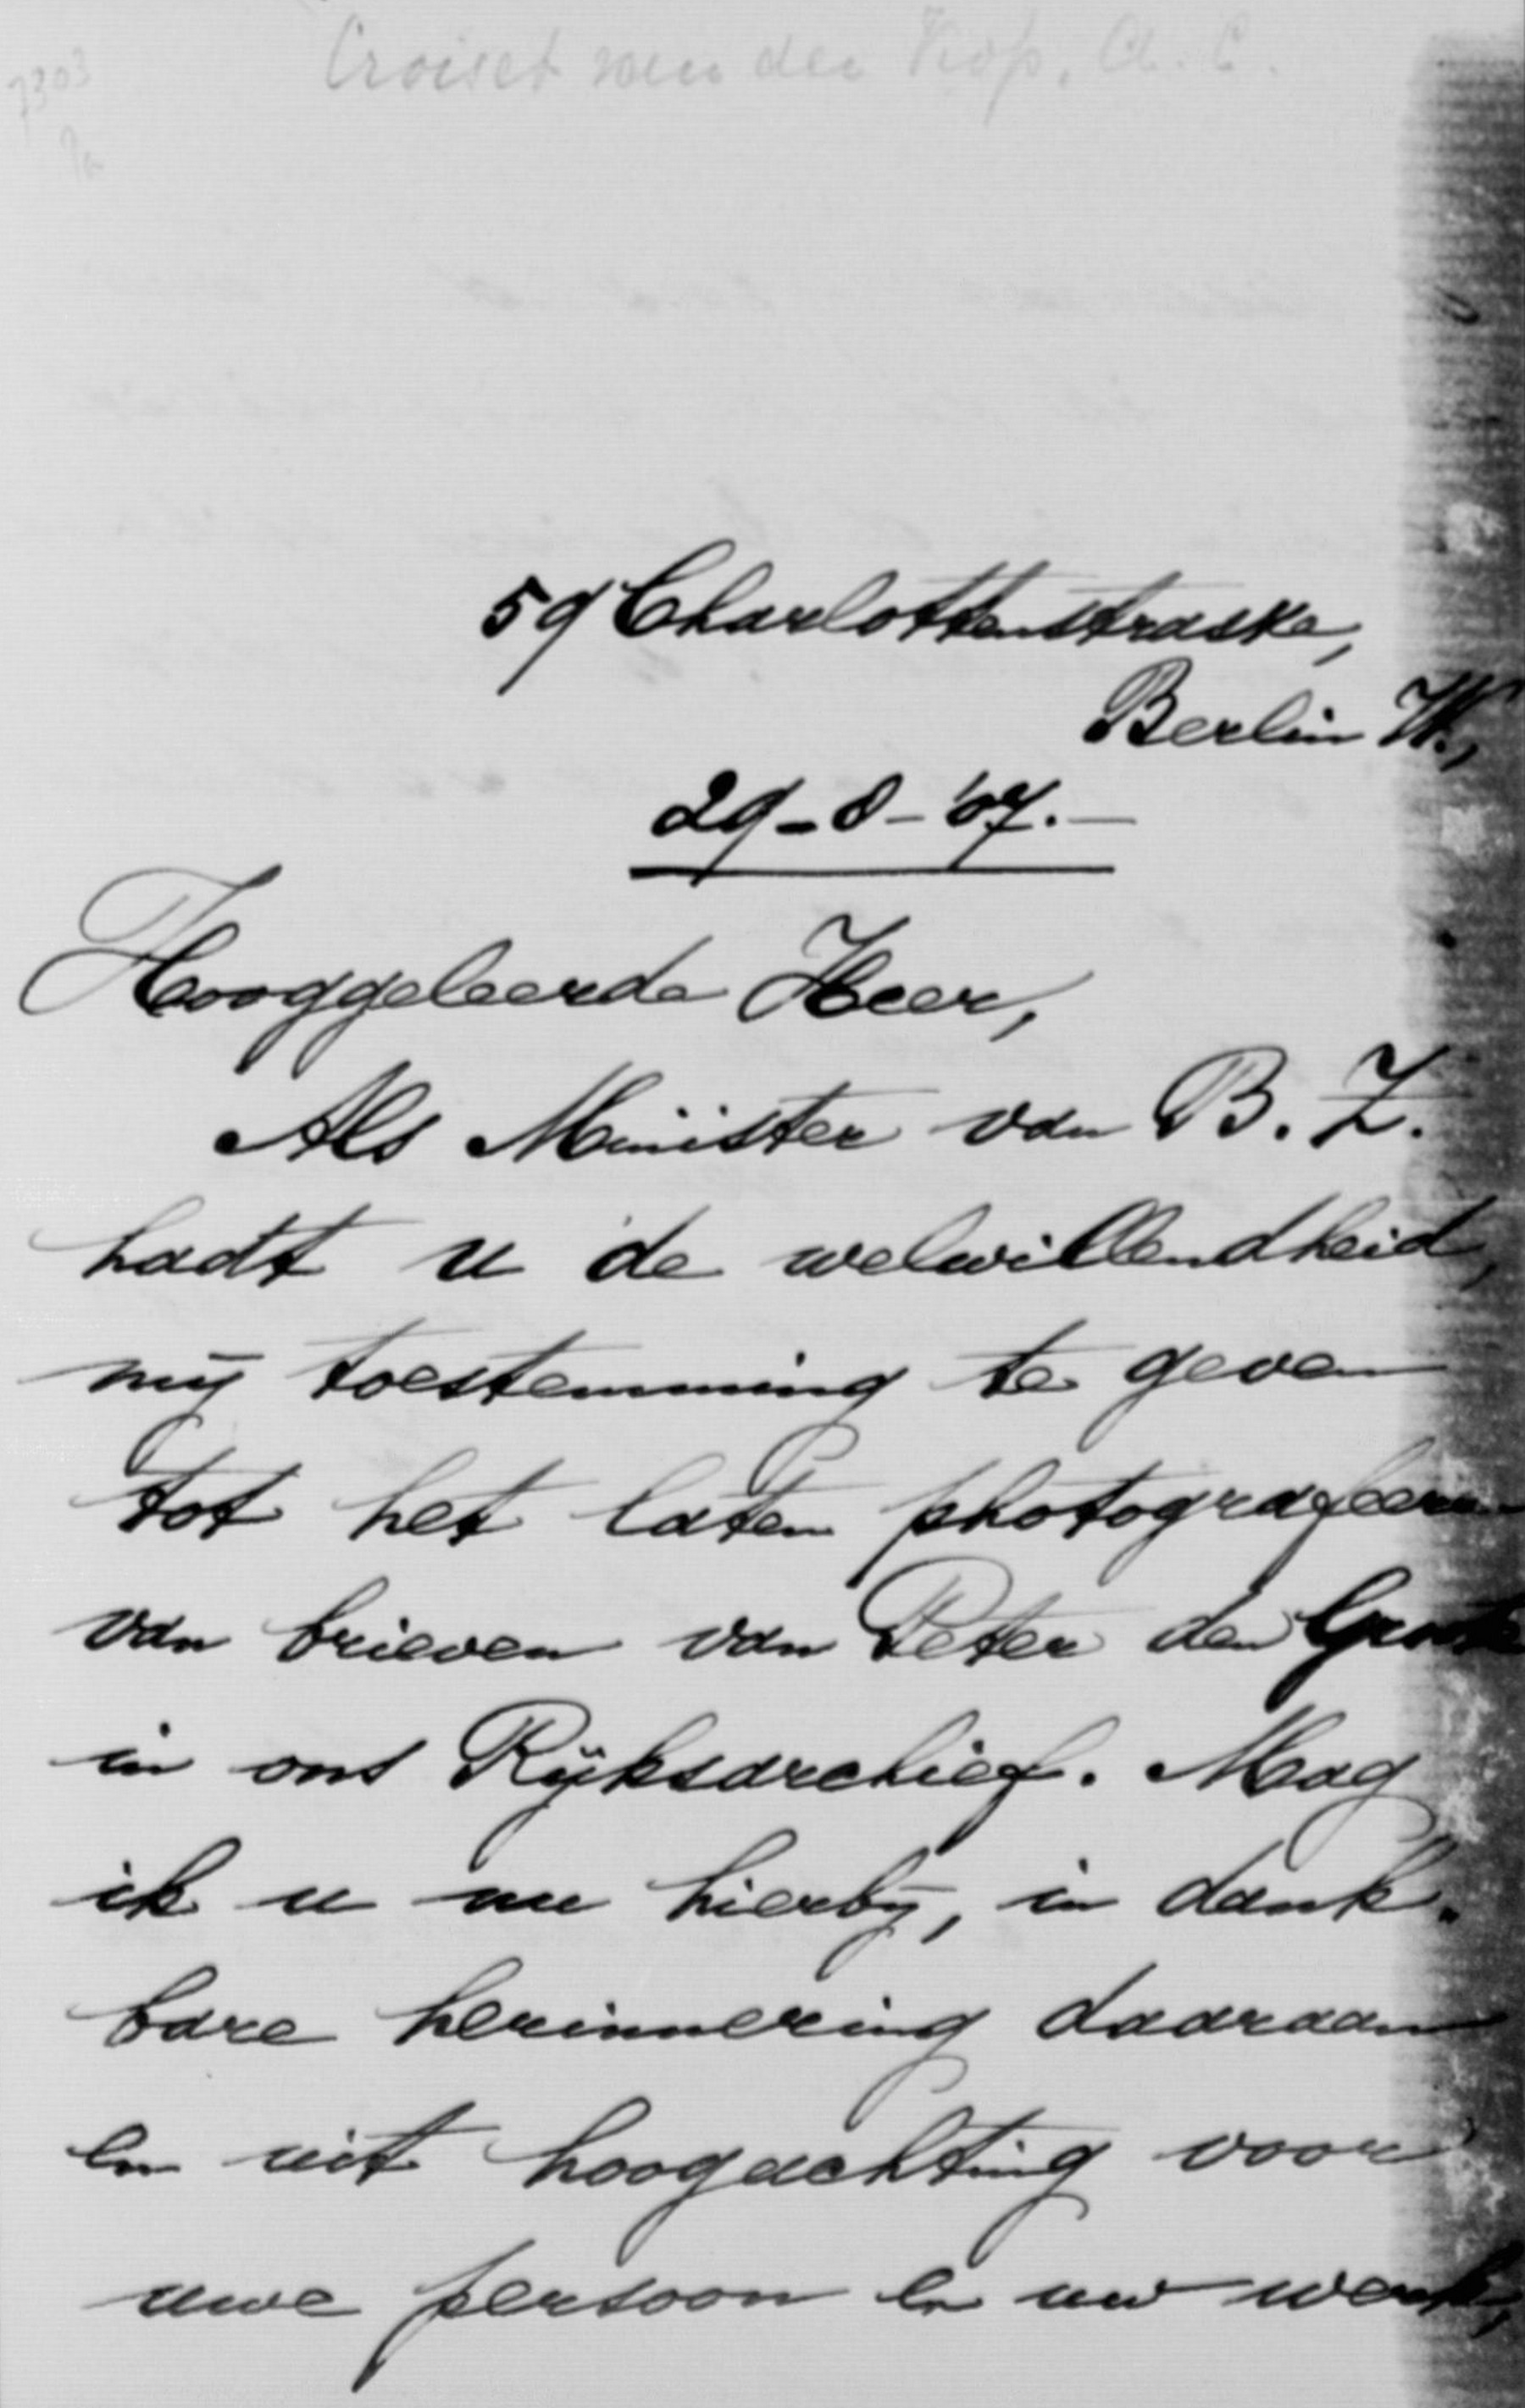 Croiset van der Kop, A. C.
7303
59 Charlottenstrasse,
Berlin W.,
29-8-'07.—
Hooggeleerde Heer,
Als Minister van B. Z.
hadt u de welwillendheid,
mij toestemming te geven
tot het laten photografeeren
van brieven van Peter den Groote
in ons Rijksarchief. Mag
ik u nu hierbij, in dank-
bare herinnering daaraan
en uit hoogachting voor
uwe persoon en uw werk,